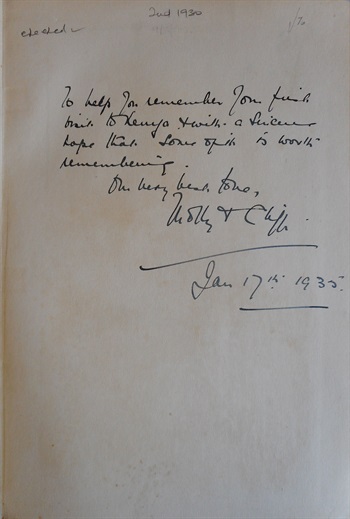 2nd 1930
checked
To help you remember your first
visit to Kenya & with a sincere
hope that some of it is worth
remembering.
Our very best to you,
Molly & Cliff.
Jan 17th 1935.